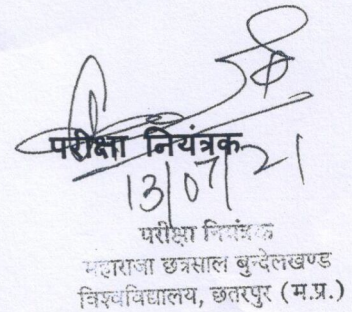 परीक्षा नियंत्रक
13/07/21
परीक्षा नियंत्रक
महाराजा छत्रसाल बुन्देलखण्ड
विश्वविद्यालय, छतरपुर (म.प्र.)